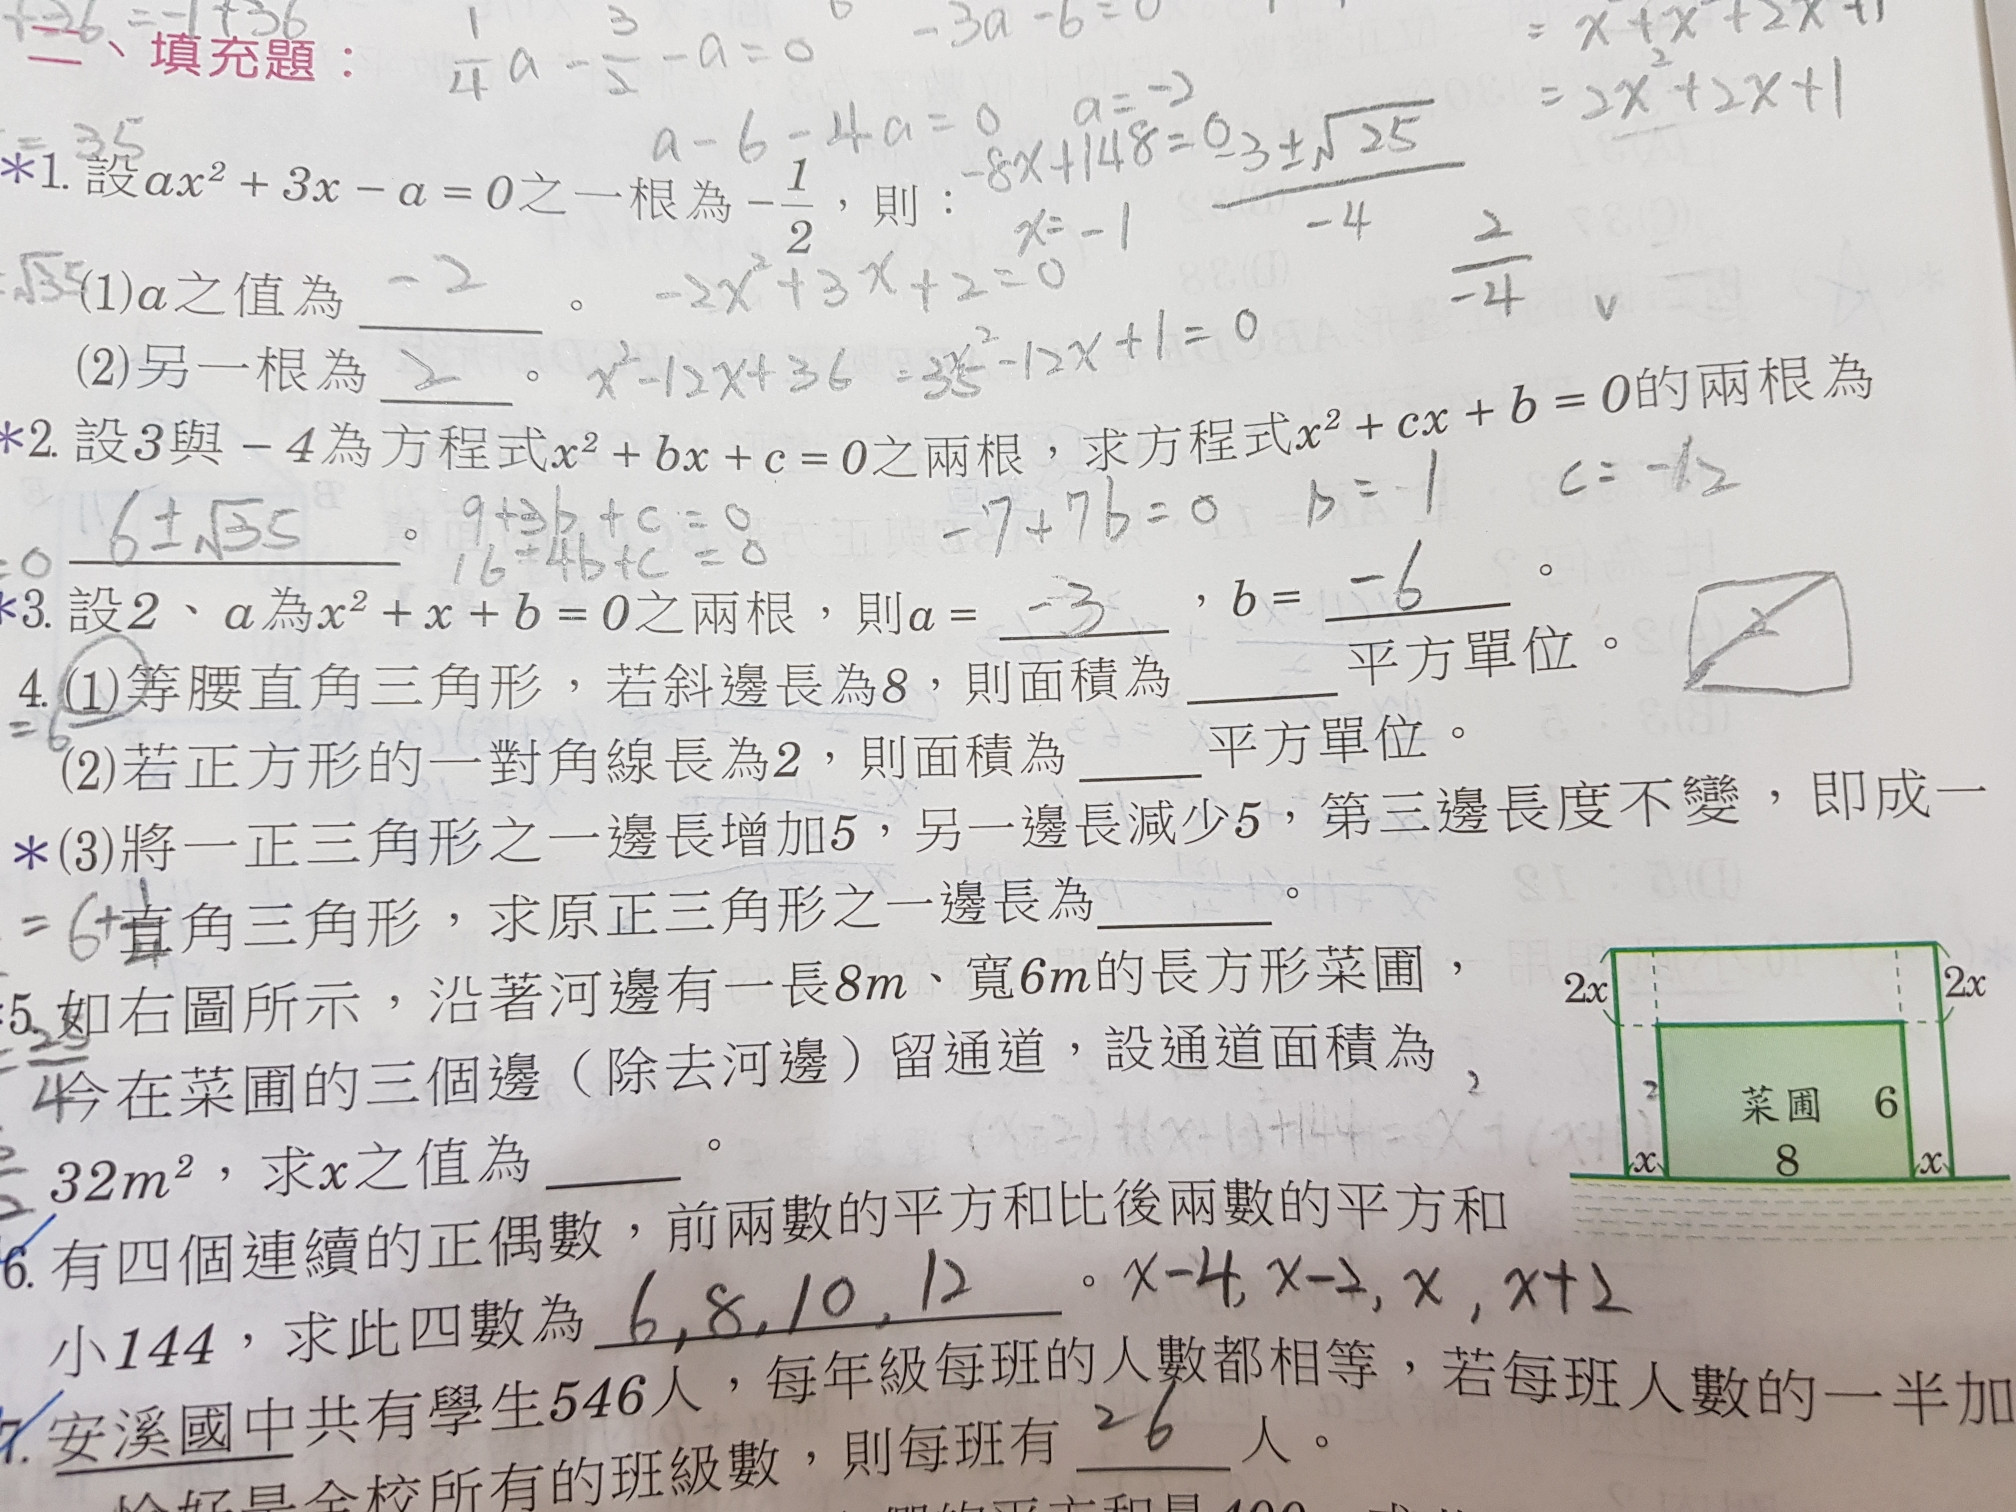 +36=-1+36
1/4 a - 3/2 - a = 0
-3a-6=0
= x²+x²+2x+1
二、填充題：
= 2x²+2x+1
a-6-4a=0 a=-2
= 35
-8x+148=0
-3±√25 / -4
*1. 設ax² + 3x − a = 0之一根為 −1/2，則：
x=-1
2/-4
=√35
(1)a之值為 -2 。 -2x²+3x+2=0
(2)另一根為 2 。 x²-12x+36 =35
x²-12x+1=0
*2. 設3與 − 4為方程式x² + bx + c = 0之兩根，求方程式x² + cx + b = 0的兩根為
=0 6±√35 。 9+3b+c=0 -7+7b=0 b=1 c=-12
16-4b+c=0
*3. 設2、a為x² + x + b = 0之兩根，則a = -3 ，b = -6 。
4. (1)等腰直角三角形，若斜邊長為8，則面積為 平方單位。
2
=6
(2)若正方形的一對角線長為2，則面積為 平方單位。
*(3)將一正三角形之一邊長增加5，另一邊長減少5，第三邊長度不變，即成一
= 6+1/4
直角三角形，求原正三角形之一邊長為 。
5. 如右圖所示，沿著河邊有一長8m、寬6m的長方形菜圃，
=25/4
今在菜圃的三個邊（除去河邊）留通道，設通道面積為
32m²，求x之值為 。
2x 2x
菜圃 6
x 8 x
6. 有四個連續的正偶數，前兩數的平方和比後兩數的平方和
小144，求此四數為 6,8,10,12 。 x-4, x-2, x, x+2
7. 安溪國中共有學生546人，每年級每班的人數都相等，若每班人數的一半加
恰好是全校所有的班級數，則每班有 26 人。